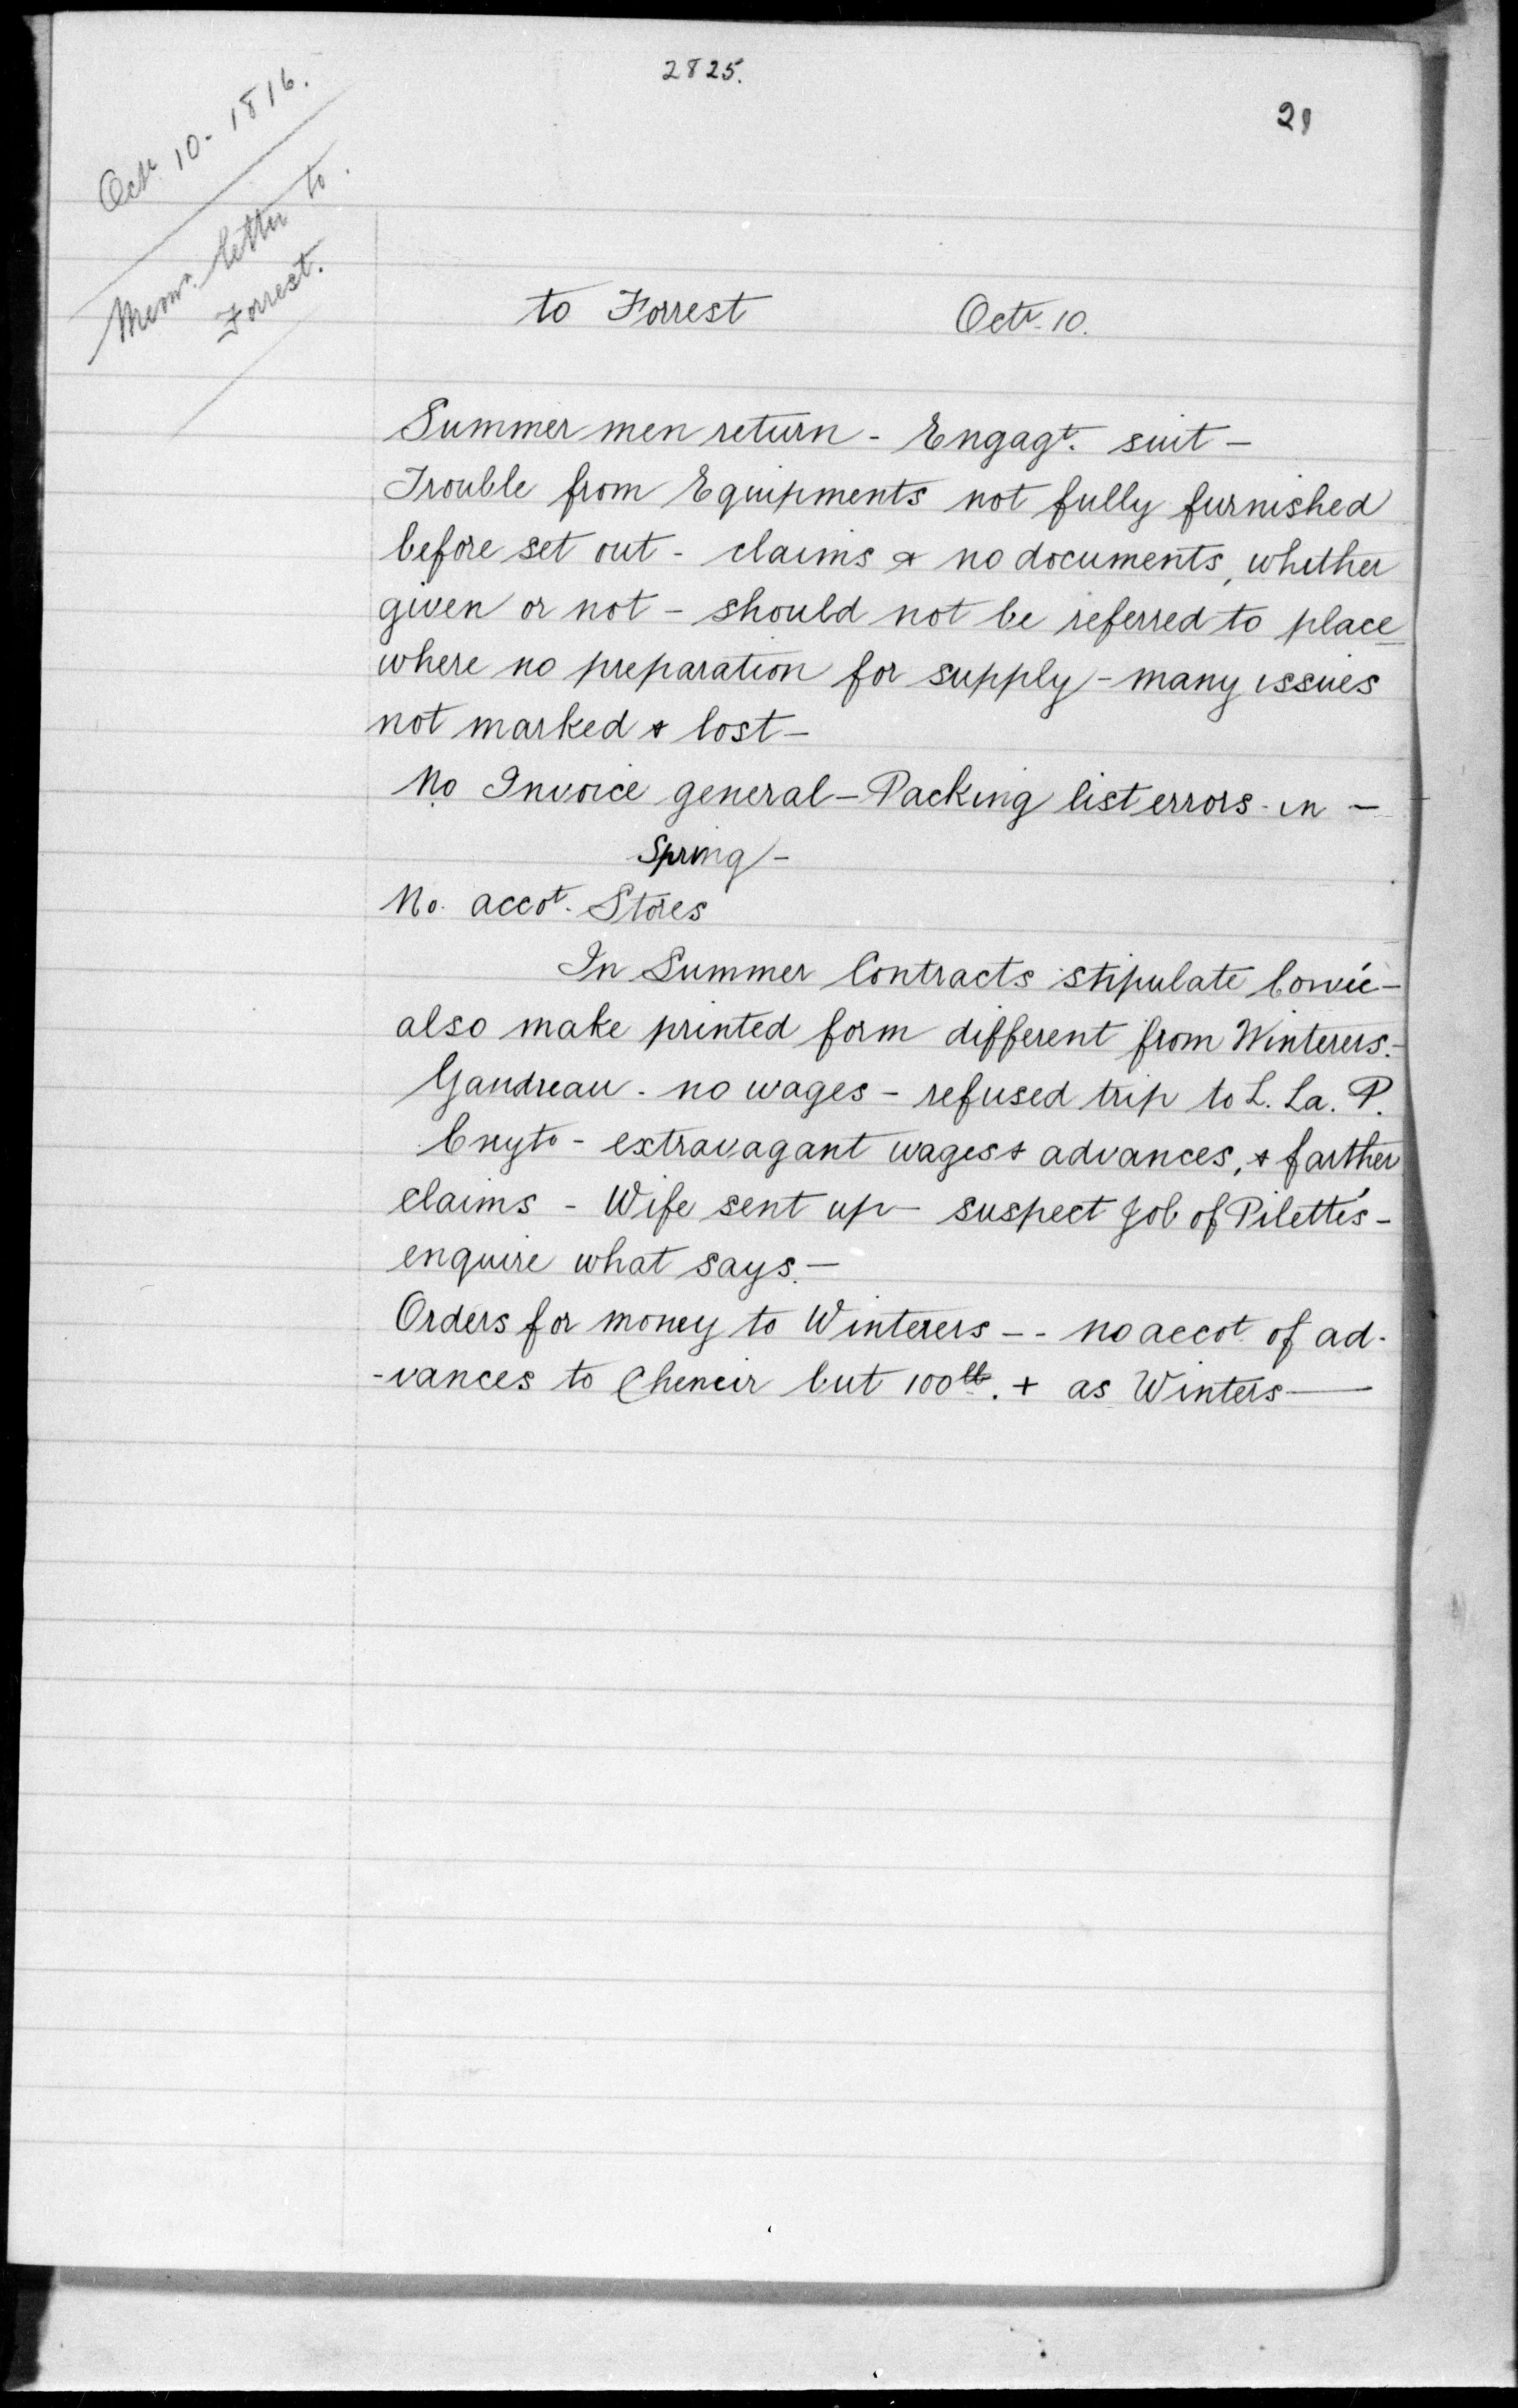 2825.
21
Octr 10 - 1816.
Memo. letter to
Forrest.
to Forrest Octr. 10.
Summer men return - Engagt. suit -
Trouble from Equipments not fully furnished
before set out - claims & no documents, whether
given or not - should not be referred to place
where no preparation for supply - many issues
not marked & lost -
No Invoice general - Packing list errors - in -
Spring -
No. accot. Stores
In Summer Contracts stipulate Corvée -
also make printed form different from Winterers. -
Gaudreau - no wages - refused trip to L. La. P.
- extravagant wages & advances, & farther
claims - Wife sent up - suspect Job of Pilette's -
enquire what says. -
Orders for money to Winterers - - no accot of ad-
-vances to Chenier but 100lt. + as Winters -